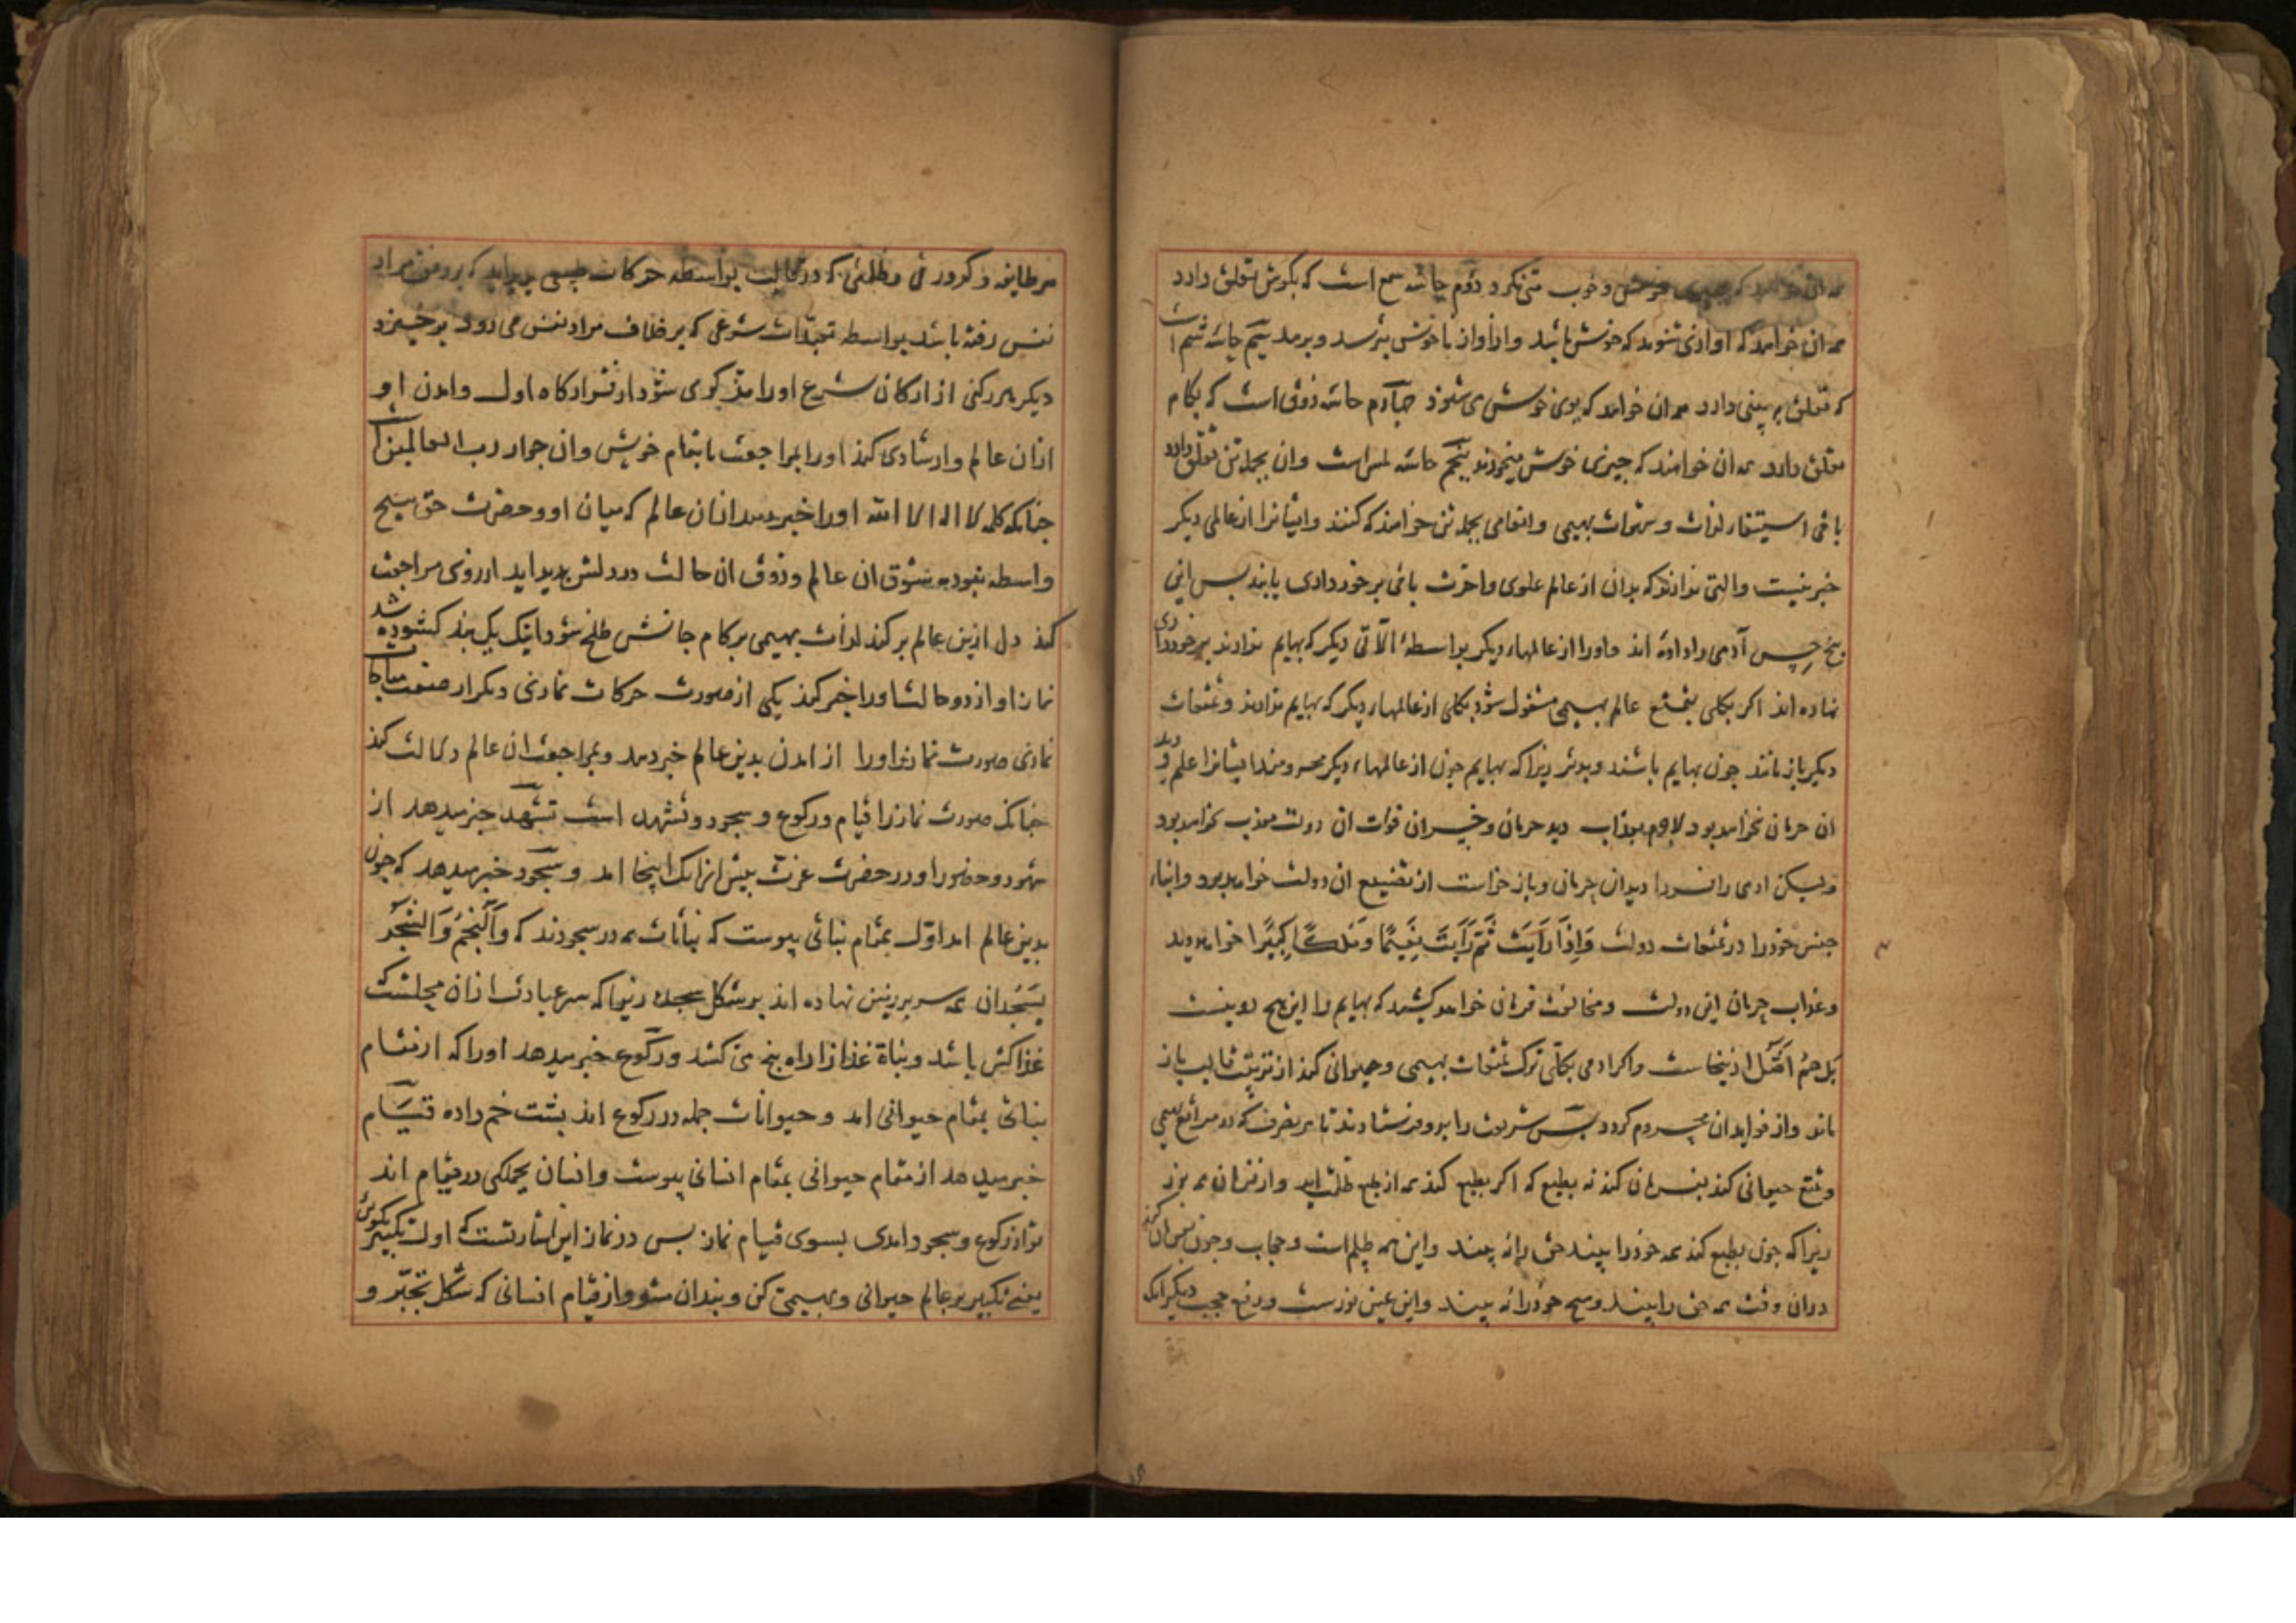 همه ان خواهد که خوش و خوب متنکرد دوم حاسّه سمع است که بکوش تعلق دارد
همه ان خواهد که اوازی شنود که خوش باشد و از اواز ناخوش بترسد و برمد سیم حاسّه شم است
که تعلق به بینی دارد همه ان خواهد که بوی خوش می شنود چهارم حاسّه ذوق است که بکام
تعلق دارد همه ان خواهند که چیزی خوش میخورند پنجم حاسّه لمس است وان بجمله تن تعلق دارد
باقی استیفاء لذات و شهوات بهیمی و انعامی بجمله تن خواهند که کنند و ایشانرا از عالمی دیکر
خبر نیست و التی ندارند که بدان از عالم علوی و اخرت باقی برخورداری یابند بس این
پنج حس آدمی را داده اند و اورا از عالمهاء دیکر بواسطهٔ الآتی دیکر که بهایم ندارند برخورداری
نهاده اند اکر بکلی بتمتع عالم بهیمی مشغول شود بکلی از عالمهاء دیکر که بهایم ندارند و تمتعات
دیکر باز ماند جون بهایم باشد و بدتر زیرا که بهایم جون از عالمهاء دیکر محرومند ایشانرا علم و دید
ان حرمان نخواهد بود لاجرم بعذاب دید حرمان و خسران فوات ان دولت معذب نخواهد بود
ولیکن ادمی را فردا دیدان حرمان و باز خواست از تضییع ان دولت خواهد بود و ابناء
جنس خود را در تمتعات دولت وَاِذَا رَاَیتَ ثَمَّ رَاَیتَ نَعِیمًا وَمُلکًا کَبِیرًا خواهد دید
و عذاب حرمان این دولت و مخالفت قرآن خواهد کشید که بهایم را این هیچ دو نیست
بَل هُم اَضَلُّ ازینجاست و اکر ادمی بکلّی ترک تمتعات بهیمی و حیوانی کند از تربیت قالب باز
ماند و از فواید ان محروم کردد بس شریعت را بدو فرستادند تا هر تصرف که در مراتع بهیمی
و تمتع حیوانی کند بفرمان کند نه بطبع که اکر بطبع کند همه از طبع ظلمت اید و از فرمان همه نور
زیرا که جون بطبع کند همه خود را بیند حق را نه بیند و این همه ظلم است و حجاب و جون بفرمان کند
دران وقت همه حق را بیند و هیچ خود را نه بیند و این عین نورست و رفع حجب دیکر انک
هر طایفه و کدورتی و ظلمتی که در قالب بواسطه حرکات طبعی بدید اید که بر وفق مراد
نفس رفته باشد بواسطه تعبدات شرعی که بر خلاف مراد نفس می رود برخیزد
دیکر هر رکنی از ارکان شرع اورا مذکوی شود از قرارکاه اول و امدن او
ازان عالم و ارشادی کند اورا بمراجعت با مقام خویش وان جوار رب العالمین است
جنانکه کلمه لا اله الا الله اورا خبر دهد ازان عالم که میان او و حضرت حق هیچ
واسطه نبود به شوق ان عالم و ذوق ان حالت در دلش بدید اید ارزوی مراجعت
کند دل ازین عالم برکند لذات بهیمی برکام جانش طلخ شود اینک یک بند کشوده شد
نماز او از دو حالت اورا خبر کند یکی از صورت حرکات نمازی دیکر از صفت مناجات
نمازی صورت نماز اورا از امدن بدین عالم خبر دهد و بمراجعت ان عالم دلالت کند
جنانک صورت نماز را قیام و رکوع و سجود و تشهد است تشهد خبر میدهد از
شهود و حضور او در حضرت عزت بیش ازانک اینجا امد و سجود خبر میدهد که جون
بدین عالم امد اوّل بمقام نباتی بیوست که نباتات همه در سجودند که وَالنَّجمُ وَالشَّجَرُ
یَسجُدانِ همه سر بر زمین نهاده اند بر شکل سجده زیرا که سر عبارت ازان محلست که
غذا کش باشد و نبات غذا از راه بیخ می کشد و رکوع خبر میدهد اورا که از مقام
نباتی بمقام حیوانی امد و حیوانات جمله در رکوع اند بشت خم داده قیام
خبر میدهد از مقام حیوانی بمقام انسانی بیوست و انسان بجملکی در قیام اند
تو از رکوع و سجود امدی بسوی قیام نماز بس در نماز این اشارتست که اول تکبیر بکوی
یعنی تکبیر بر عالم حیوانی و بهیمی کن و بندان مشو و از قیام انسانی که شکل تجبّر و